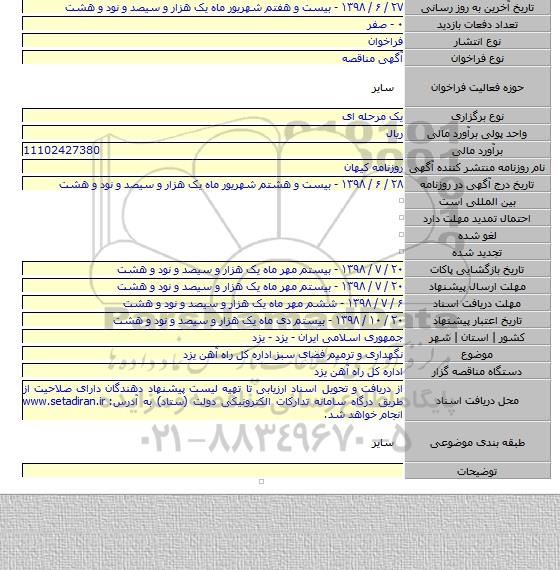 تاریخ آخرین به روز رسانی ۲۷ / ۶ / ۱۳۹۸ - بیست و هفتم شهریور ماه یک هزار و سیصد و نود و هشت
تعداد دفعات بازدید ۰ - صفر
نوع انتشار فراخوان
نوع فراخوان آگهی مناقصه
حوزه فعالیت فراخوان سایر
نوع برگزاری یک مرحله ای
واحد پولی برآورد مالی ریال
برآورد مالی 11102427380
نام روزنامه منتشر کننده آگهی روزنامه کیهان
تاریخ درج آگهی در روزنامه ۲۸ / ۶ / ۱۳۹۸ - بیست و هشتم شهریور ماه یک هزار و سیصد و نود و هشت
بین المللی است
احتمال تمدید مهلت دارد
لغو شده
تجدید شده
تاریخ بازگشایی پاکات ۲۰ / ۷ / ۱۳۹۸ - بیستم مهر ماه یک هزار و سیصد و نود و هشت
مهلت ارسال پیشنهاد ۲۰ / ۷ / ۱۳۹۸ - بیستم مهر ماه یک هزار و سیصد و نود و هشت
مهلت دریافت اسناد ۶ / ۷ / ۱۳۹۸ - ششم مهر ماه یک هزار و سیصد و نود و هشت
تاریخ اعتبار پیشنهاد ۲۰ / ۱۰ / ۱۳۹۸ - بیستم دی ماه یک هزار و سیصد و نود و هشت
کشور | استان | شهر جمهوری اسلامی ایران - یزد - یزد
موضوع نگهداری و ترمیم فضای سبز اداره کل راه آهن یزد
دستگاه مناقصه گزار اداره کل راه آهن یزد
محل دریافت اسناد از دریافت و تحویل اسناد ارزیابی تا تهیه لیست پیشنهاد دهندگان دارای صلاحیت از
طریق درگاه سامانه تدارکات الکترونیکی دولت (ستاد) به آدرس: www.setadiran.ir
انجام خواهد شد.
طبقه بندی موضوعی سایر
توضیحات
۰۲۱-۸۸۳۴۹۶۷۰-۵